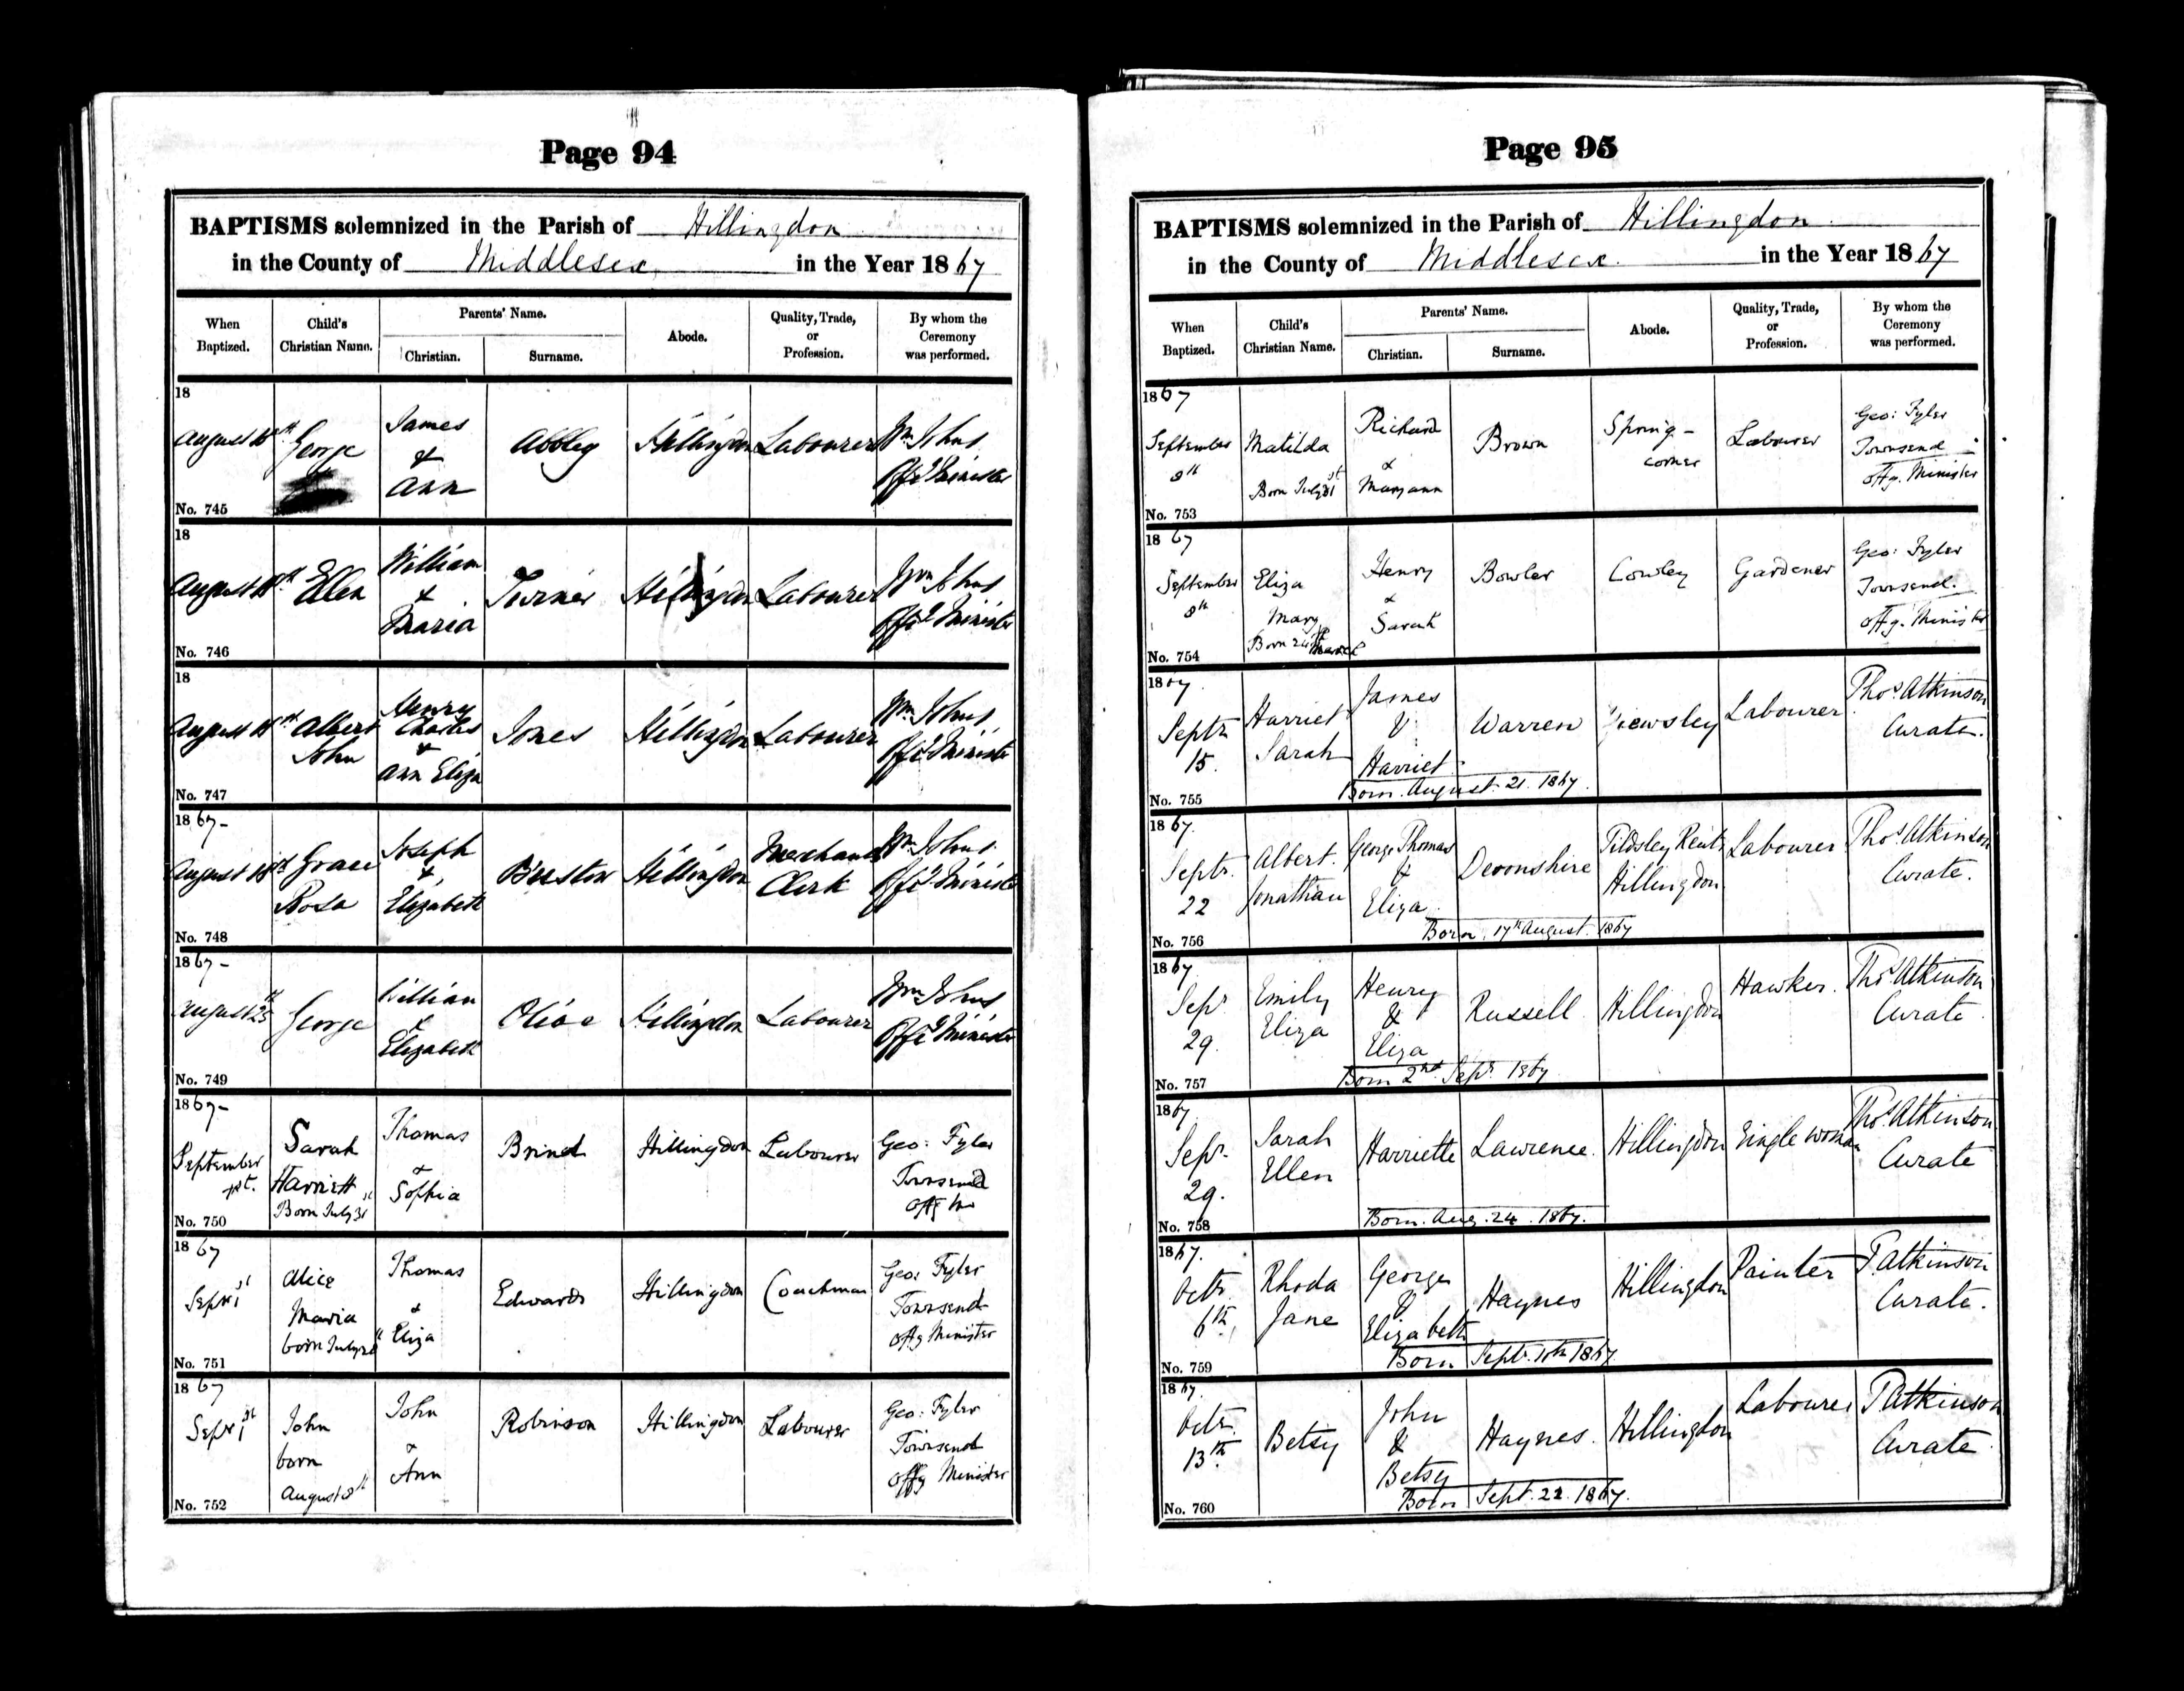 Page 94
BAPTISMS solemnized in the Parish of Hillingdon
in the County of Middlesex in the Year 1867
When Baptized.
Child's Christian Name.
Parents' Name.
Christian.
Surname.
Abode.
Quality, Trade, or Profession.
By whom the Ceremony was performed.
18
August 18th George James & Ann Hillingdon Labourer Wm Johns Offg Minister
No. 745
18
August 18th Ellen William & Maria Turner Hillingdon Labourer Wm Johns Offg Minister
No. 746
18
August 18th Albert John Henry Charles & Ann Eliza Jones Hillingdon Labourer Wm Johns Offg Minister
No. 747
1867-
August 18th Grace Rosa Joseph & Elizabeth Hillingdon Merchants Clerk Wm Johns Offg Minister
No. 748
1867-
August 25th George William & Elizabeth Hillingdon Labourer Wm Johns Offg Minister
No. 749
1867-
September 1st. Sarah Harriett Born July 31st Thomas & Sophia Hillingdon Labourer Geo: Fyler Townsend offg
No. 750
1867
Septr 1st Alice Maria born July Thomas & Eliza Edwards Hillingdon Coachman Geo: Fyler Townsend offg Minister
No. 751
1867
Septr 1st John born August 8th John & Ann Robinson Hillingdon Labourer Geo: Fyler Townsend offg Minister
No. 752
Page 95
BAPTISMS solemnized in the Parish of Hillingdon
in the County of Middlesex. in the Year 1867
When Baptized.
Child's Christian Name.
Parents' Name.
Christian.
Surname.
Abode.
Quality, Trade, or Profession.
By whom the Ceremony was performed.
1867
September 8th Matilda Born July 31st Richard & Maryann Brown Spring-corner Labourer Geo: Fyler Townsend offg. Minister
No. 753
1867
September 8th Eliza Mary Born 24th March Henry & Sarah Bowler Cowley Gardener Geo: Fyler Townsend. offg. Minister
No. 754
1867.
Septr 15. Harriet Sarah James & Harriet Warren Yiewsley Labourer Thos Atkinson Curate.
Born. August 21. 1867.
No. 755
1867.
Septr. 22 Albert. Jonathan George Thomas & Eliza. Devonshire Hillingdon Labourer Thos Atkinson Curate.
Born. 17th August. 1867
No. 756
1867
Sepr 29. Emily Eliza Henry & Eliza Russell Hillingdon Hawker. Thos Atkinson Curate
Born 2nd Sepr 1867
No. 757
1867
Sepr. 29. Sarah Ellen Harriette Lawrence. Hillingdon Single woman Thos Atkinson Curate
Born. Aug. 24. 1867.
No. 758
1867.
Octr. 6th. Rhoda Jane George & Elizabeth Haynes Hillingdon Painter T. Atkinson Curate.
Born Septr. 10th 1867
No. 759
1867.
Octr. 13th. Betsy John & Betsy Haynes. Hillingdon Labourer T Atkinson Curate
Born Sept. 22. 1867.
No. 760